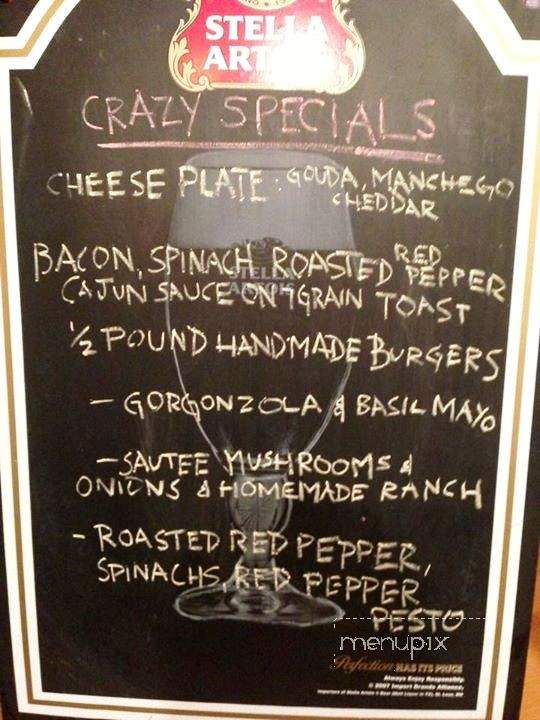 STELLA
ARTOIS
CRAZY SPECIALS
CHEESE PLATE : GOUDA, MANCHEGO
CHEDDAR
BACON, SPINACH ROASTED RED PEPPER
CAJUN SAUCE ON 7 GRAIN TOAST
STELLA
ARTOIS
½ POUND HANDMADE BURGERS
- GORGONZOLA & BASIL MAYO
- SAUTEE MUSHROOMS &
ONIONS & HOMEMADE RANCH
- ROASTED RED PEPPER,
SPINACHS, RED PEPPER
PESTO
menupix
Perfection HAS ITS PRICE
Always Enjoy Responsibly.
© 2007 Import Brands Alliance,